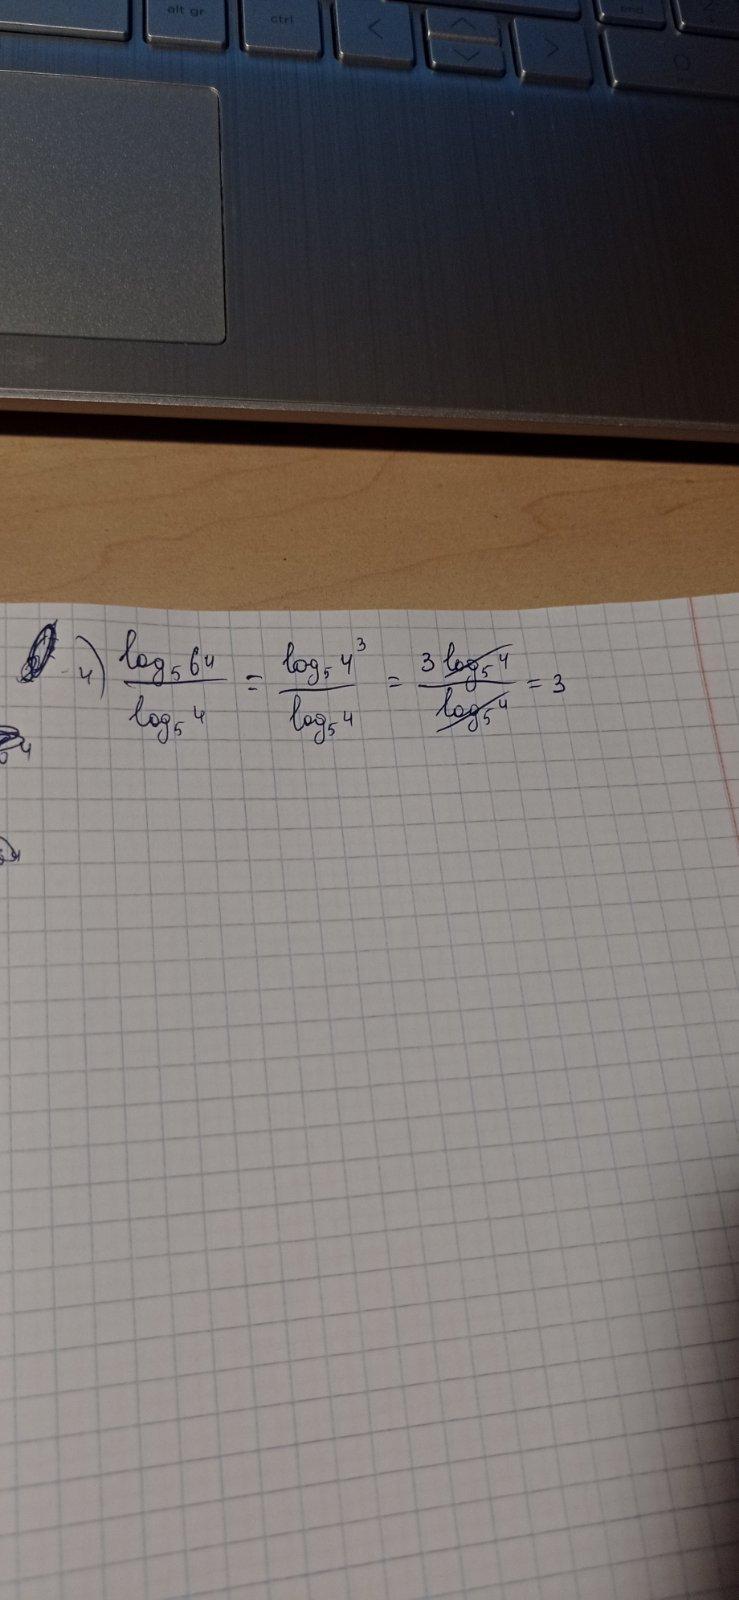 alt gr
ctrl
end
4) log₅64 / log₅4 = log₅4³ / log₅4 = 3 log₅4 / log₅4 = 3
4